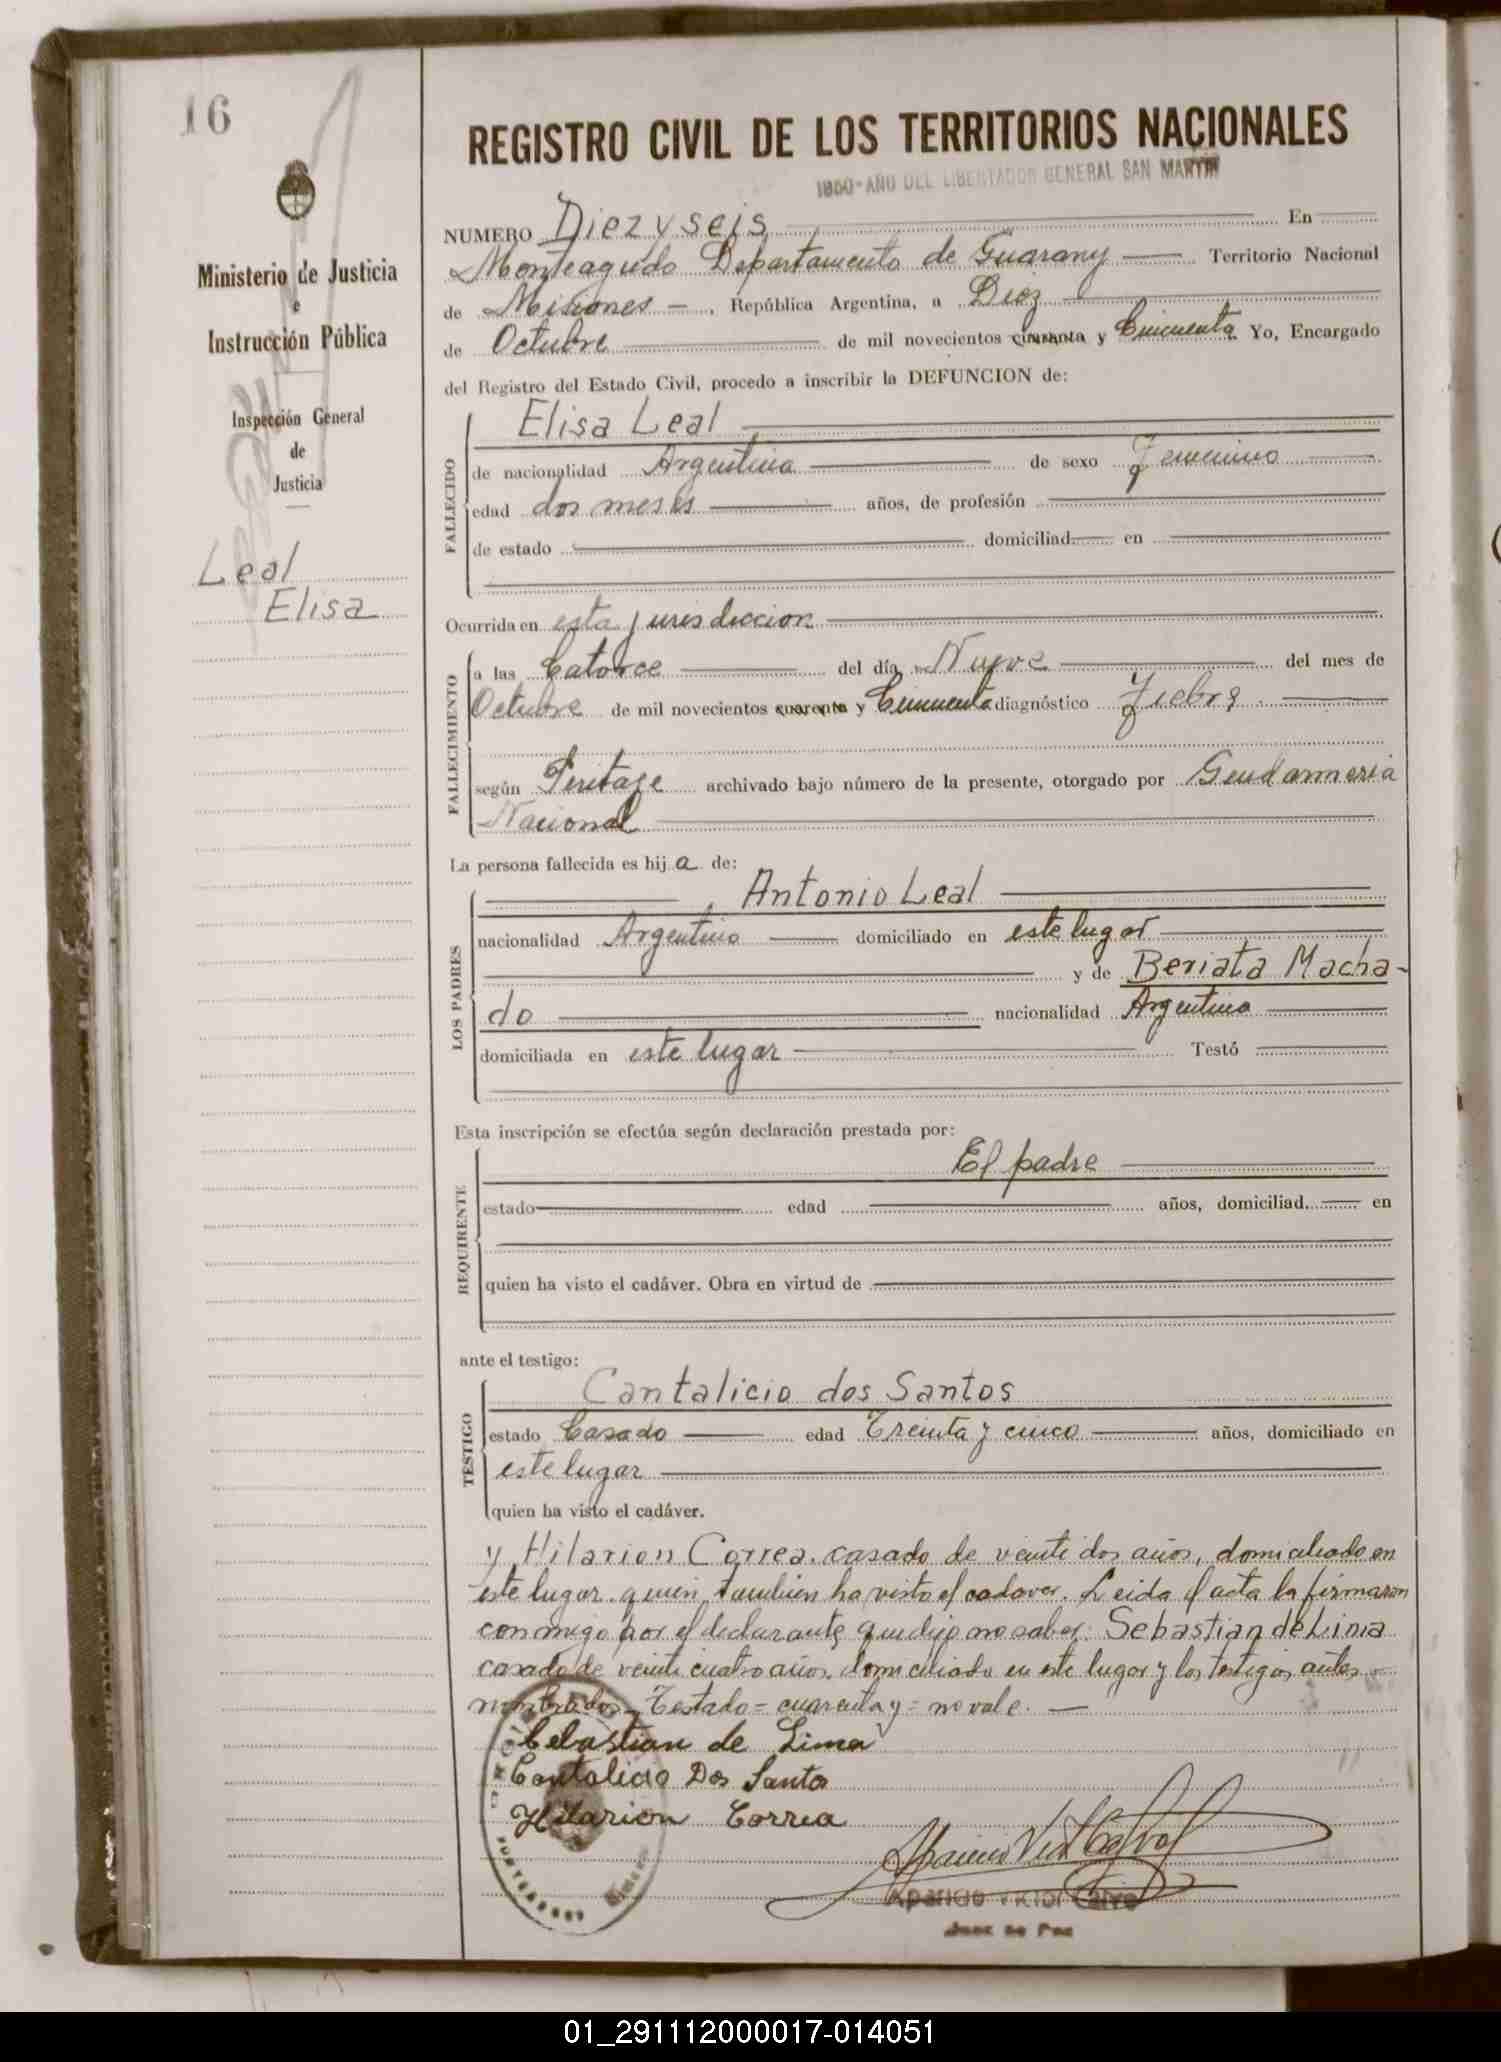 16
REGISTRO CIVIL DE LOS TERRITORIOS NACIONALES
1950-AÑO DEL LIBERTADOR GENERAL SAN MARTIN
Ministerio de Justicia
e
Instrucción Pública
Inspección General
de
Justicia
Leal
Elisa
NUMERO Diez y seis En
Monteagudo Departamento de Guarany Territorio Nacional
de Misiones, República Argentina, a Diez
de Octubre de mil novecientos cuarenta y Cincuenta Yo, Encargado
del Registro del Estado Civil, procedo a inscribir la DEFUNCION de:
FALLECIDO
Elisa Leal
de nacionalidad Argentina de sexo Femenino
edad dos meses años, de profesión
de estado domiciliad en
Ocurrida en esta jurisdiccion
FALLECIMIENTO
a las Catorce del día Nueve del mes de
Octubre de mil novecientos cuarenta y Cincuenta diagnóstico Fiebre
según Peritaje archivado bajo número de la presente, otorgado por Gendarmeria
Nacional
La persona fallecida es hija de:
LOS PADRES
Antonio Leal
nacionalidad Argentino domiciliado en este lugar
y de Beriata Macha-
do nacionalidad Argentina
domiciliada en este lugar Testó
Esta inscripción se efectúa según declaración prestada por:
REQUIRENTE
El padre
estado edad años, domiciliad en
quien ha visto el cadáver. Obra en virtud de
ante el testigo:
TESTIGO
Cantalicio dos Santos
estado Casado edad Treinta y cinco años, domiciliado en
este lugar
quien ha visto el cadáver.
y Hilarion Correa. casado de veinte dos años, domiciliado en
este lugar. quien tambien ha visto el cadaver. Leida el acta la firmaron
conmigo por el declarante que dijo no saber: Sebastian de Linia
casado de veinte cuatro años. domiciliado en este lugar y los testigos antes
nombrados. Testado = cuarenta y = no vale.
Cebastian de Lima
Cantalicio Dos Santos
Hilarion Correa
Aparicio Victor Calvo
Juez de Paz
01_291112000017-014051